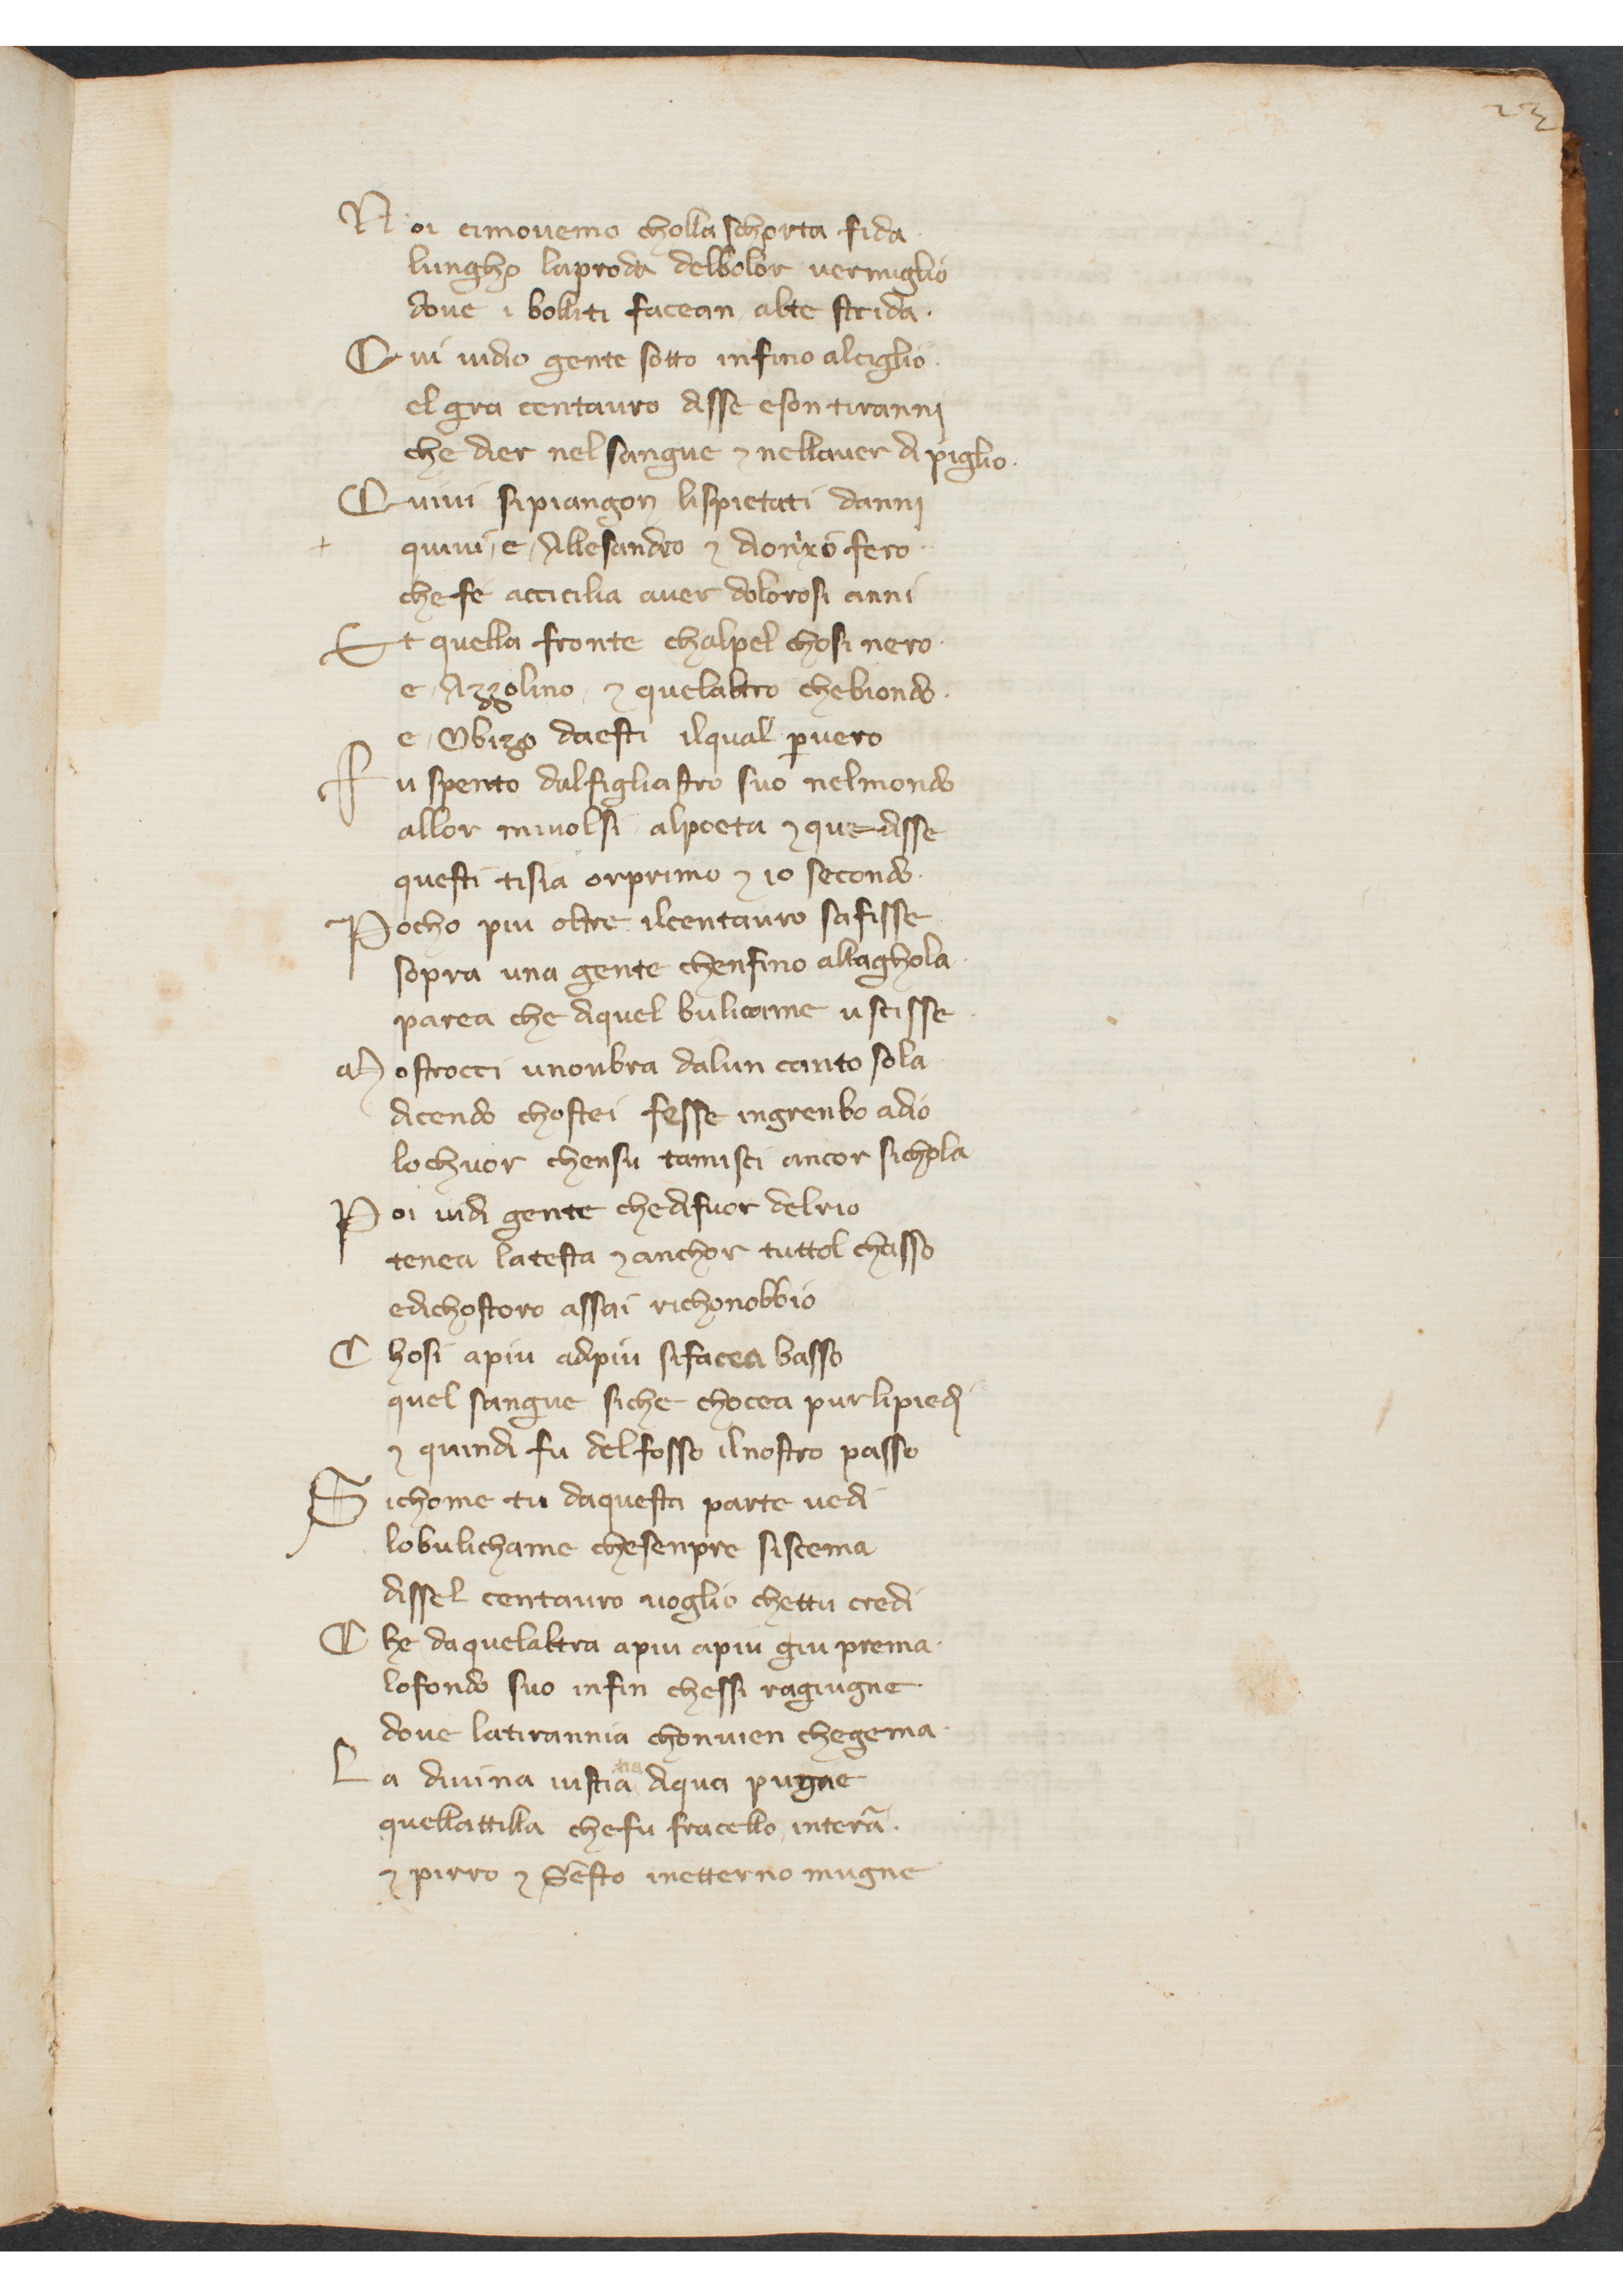 23
Noi cimovemo cholla schorta fida.
lungho laproda delbolor vermiglio
dove i bolliti facean alte strida.
Qui vidio gente sotto infino alciglio.
el gra centauro disse eson tiranni
che dier nel sangue ⁊ nellaver di piglio.
Quivi sipiangon lispietati danni
+ quivi, e, Allesandro ⁊ dionixo fero.
che fe accicilia aver dolorosi anni
Et quella fronte chalpel chosi nero.
e, Azzolino, ⁊ quelaltro chebiondo.
e, Obizo daesti ilqual pervero
Fu spento dalfigliastro suo nelmondo
allor mivolsi alpoeta ⁊ que disse
questi tisia orprimo ⁊ io secondo.
Pocho piu oltre ilcentauro safisse
sopra una gente chenfino allaghola.
parea che diquel bulicame uscisse.
Mostrocci unonbra dalun canto sola
dicendo chostei fesse ingrenbo adio
lochuor chensu tamisci ancor sichola
Poi vidi gente chedifuor delrio
tenea latesta ⁊ anchor tuttol chasso
edichostoro assai richonobbio
Chosi apiu adpiu sifacea basso
quel sangue siche chocea purlipiedi
⁊ quindi fu delfosso ilnostro passo
Sichome tu daquesta parte vedi
lobulichame chesenpre siscema
dissel centauro voglio chettu credi
Che daquelaltra apiu apiu giu prema.
lofondo suo infin chessi ragiugne.
dove latirannia chonvien chegema.
La divina iustia diqua pugne
quellattilla chefu fracello, interra.
⁊ pirro ⁊ Sesto inetterno mugne